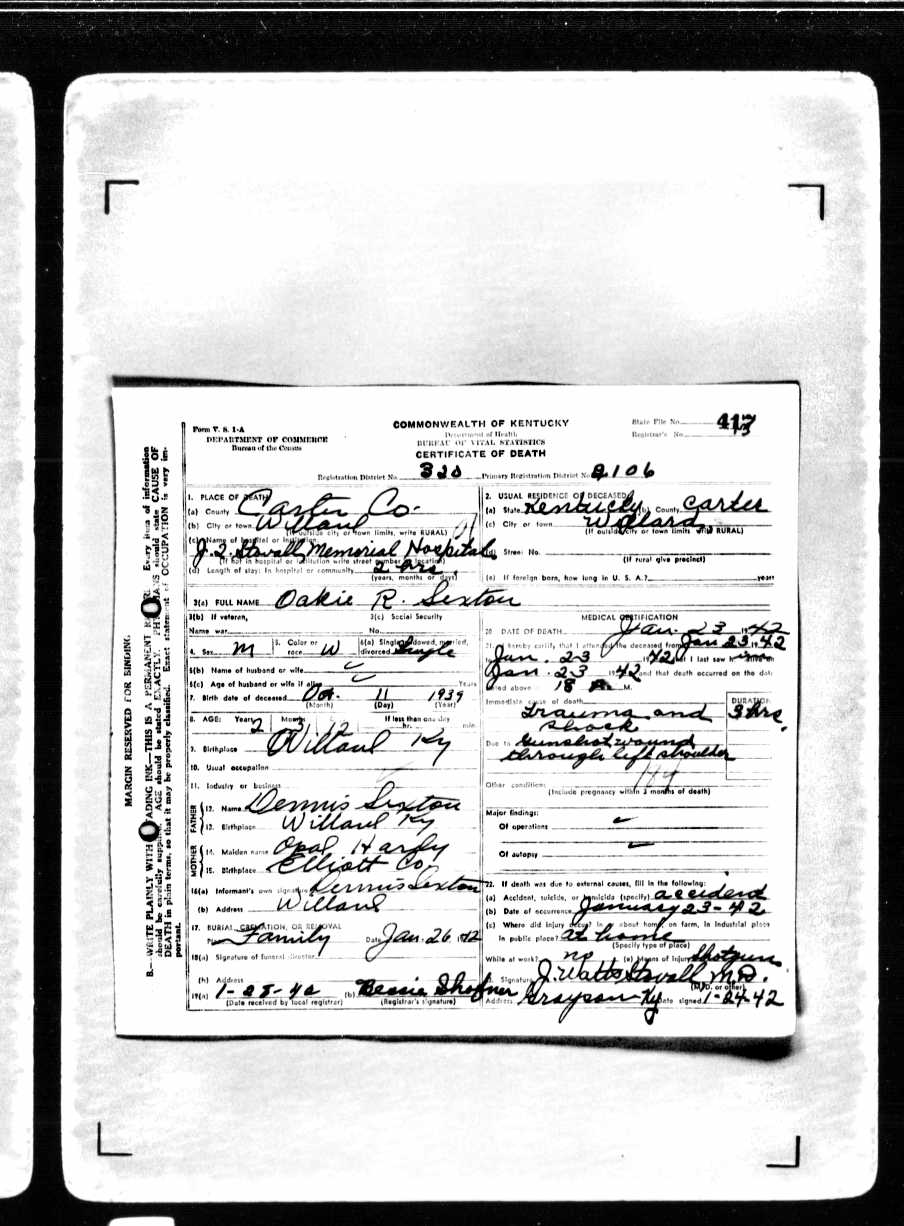 Form V. S. 1-A
DEPARTMENT OF COMMERCE
Bureau of the Census
COMMONWEALTH OF KENTUCKY
Department of Health
BUREAU OF VITAL STATISTICS
CERTIFICATE OF DEATH
State File No. 417
Registrar's No.
Registration District No. Primary Registration District No. 2106
1. PLACE OF DEATH
(a) County Carter Co.
(b) City or town Willard
(If outside city or town limits, write RURAL)
(c) Name of hospital or institution
J. Q. Stovall Memorial Hospital
(If not in hospital or institution write street number or location)
(d) Length of stay: In hospital or community 2 hrs.
(years, months or days)
2. USUAL RESIDENCE OF DECEASED
(a) State Kentucky (b) County Carter
(c) City or town Willard
(If outside city or town limits write RURAL)
(d) Street No.
(If rural give precinct)
(e) If foreign born, how long in U. S. A.? years
3(a) FULL NAME Oakie R. Sexton
3(b) If veteran,
Name war
3(c) Social Security
No.
4. Sex M 5. Color or race W 6(a) Single, widowed, married, divorced Single
6(b) Name of husband or wife
6(c) Age of husband or wife if alive Years
7. Birth date of deceased Oct. 11 1939
(Month) (Day) (Year)
8. AGE: Years 2 Months 3 12 If less than one day
hr. min.
9. Birthplace Willard Ky
10. Usual occupation
11. Industry or business
FATHER
12. Name Dennis Sexton
13. Birthplace Willard Ky
MOTHER
14. Maiden name Opal Hardy
15. Birthplace Elliott Co.
16(a) Informant's own signature Dennis Sexton
(b) Address Willard
17. BURIAL, CREMATION, OR REMOVAL
Family Date Jan. 26, 1942
18(a) Signature of funeral director
(b) Address
19(a) 1-28-42 (b) Bessie Shofner
(Date received by local registrar) (Registrar's signature)
MEDICAL CERTIFICATION
20 DATE OF DEATH Jan. 23 1942
21. I hereby certify that I attended the deceased from Jan 23 1942
to Jan. 23 1942 that I last saw alive on
Jan. 23 1942 and that death occurred on the date
stated above at M.
Immediate cause of death
Trauma and shock
DURATION
3 hrs.
Due to Gunshot wound
through left shoulder
Other conditions
(Include pregnancy within 3 months of death)
Major findings:
Of operations
Of autopsy
22. If death was due to external causes, fill in the following:
(a) Accident, suicide, or homicide (specify) accident
(b) Date of occurrence January 23-42
(c) Where did injury occur? In or about home, on farm, in industrial place
in public place? at home
(Specify type of place)
While at work? no (e) Means of injury Shotgun
Signature J. Watts Stovall M.D.
(M.D. or other)
Address Grayson Ky Date signed 1-24-42
MARGIN RESERVED FOR BINDING.